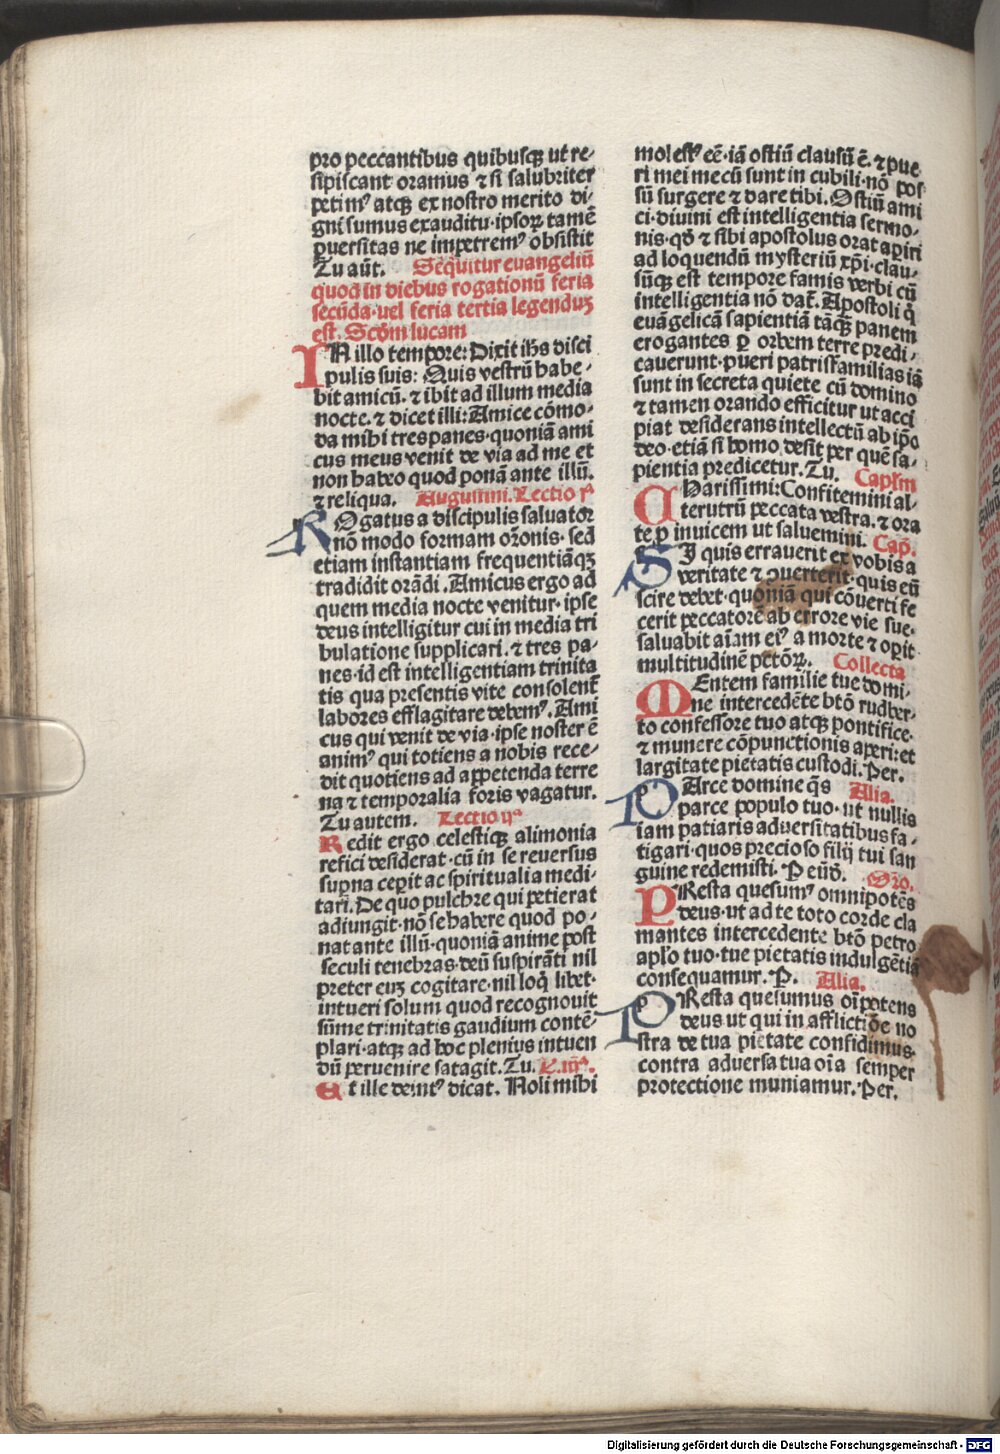 pro peccantibus quibusqꝫ ut re⸗
sipiscant oramus ⁊ si salubriter
petimꝰ atqꝫ ex nostro merito di⸗
gni sumus exauditu·ipsoꝝ tamē
ꝑuersitas ne impetremꝰ obsistit
Tu aūt. Sequitur euangeliū
quod in diebus rogationū feria
secūda·uel feria tertia legenduꝫ
est. Scd̄m lucam
IN illo tempore: Dixit ih̄s disci
pulis suis: Quis vestrū habe⸗
bit amicū·⁊ ibit ad illum media
nocte·⁊ dicet illi: Amice cōmo⸗
da mihi tres panes·quoniā ami
cus meus venit de via ad me et
non habeo quod ponā ante illū.
⁊ reliqua. Augustini. Lectio pᵃ
ROgatus a discipulis saluator
nō modo formam or̄onis· sed
etiam instantiam frequentiāqꝫ
tradidit orādi. Amicus ergo ad
quem media nocte venitur· ipse
deus intelligitur cui in media tri
bulatione supplicari·⁊ tres pa⸗
nes·id est intelligentiam trinita
tis qua presentis vite consolent̄
labores efflagitare debemꝰ. Ami
cus qui venit de via·ipse noster ē
animꝰ qui totiens a nobis rece⸗
dit quotiens ad appetenda terre
na ⁊ temporalia foris vagatur.
Tu autem. Lectio ijᵃ
Redit ergo celestiqꝫ alimonia
refici desiderat·cū in se reuersus
supna ceperit ac spiritualia medi⸗
tari. De quo pulchre qui petierat
adiungit·nō se habere quod po⸗
nat ante illū·quoniā anime post
seculi tenebras·deū suspirāti nil
preter euꝫ cogitare·nil loqͥ libet·
intueri solum quod recognouit
sūme trinitatis gaudium contē⸗
plari·atqꝫ ad hoc plenius intuen
dū peruenire satagit. Tu. L. iijᵃ.
Et ille deintꝰ dicat. Noli mihi
molestꝰ eē·iā ostiū clausū ē·⁊ pue
ri mei mecū sunt in cubili·nō pos
sū surgere ⁊ dare tibi. Ostiū ami
ci·diuini est intelligentia sermo⸗
nis·qd̄ ⁊ sibi apostolus orat aperiri
ad loquendū mysteriū xp̄i·clau⸗
sūqꝫ est tempore famis verbi cū
intelligentia nō dat̄. Apostoli qͥ
euāgelicā sapientiā tāqꝫ panem
erogantes ꝑ orbem terre predi⸗
cauerunt·pueri patrisfamilias iā
sunt in secreta quiete cū domino
⁊ tamen orando efficitur ut acci
piat desiderans intellectū ab ip̄o
deo·etiā si homo desit per quē sa⸗
pientia predicetur. Tu. Capl̄m
CHarissimi: Confitemini al⸗
terutrū peccata vestra·⁊ ora
te ꝓ inuicem ut saluemini. Cap̄.
SI quis errauerit ex vobis a
veritate ⁊ ꝯuerterit·quis eū
scire debet·quoniā qui cōuerti fe
cerit peccatorē ab errore vie sue·
saluabit aīam eiꝰ a morte ⁊ operit
multitudinē pctōꝝ. Collecta
MEntem familie tue domi⸗
ne intercedēte btō rudber⸗
to confessore tuo atqꝫ pontifice·
⁊ munere cōpunctionis aperi: et
largitate pietatis custodi. Per.
PArce domine qs̄ Alia.
parce populo tuo· ut nullis
iam patiaris aduersitatibus fa⸗
tigari·quos precioso filij tui san
guine redemisti. P eūd̄. Or̄o.
PResta quesumꝰ omnipotēs
deus·ut ad te toto corde cla
mantes intercedente btō petro
apl̄o tuo·tue pietatis indulgētiā
consequamur. P. Alia.
PResta quesumus oīpotens
deus ut qui in afflictiōe no
stra de tua pietate confidimus·
contra aduersa tua oīa semper
protectione muniamur. Per.
Digitalisierung gefördert durch die Deutsche Forschungsgemeinschaft - DFG